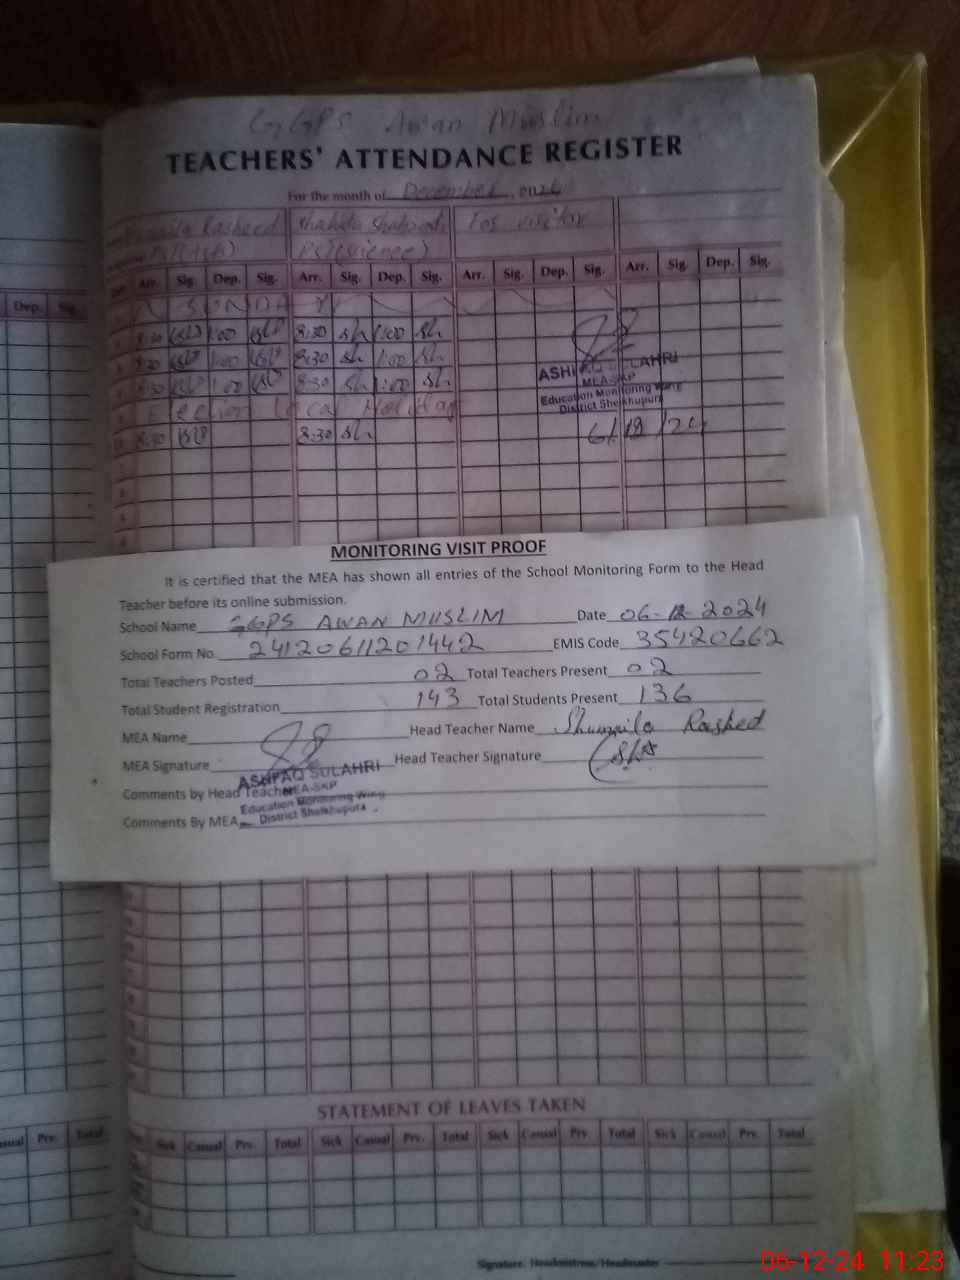 GGPS Awan Muslim
TEACHERS' ATTENDANCE REGISTER
For the month of December, 2024
Rasheed Shahida For visitor
PST(science)
Arr. Sig. Dep. Sig. Arr. Sig. Dep. Sig. Arr. Sig. Dep. Sig. Arr. Sig. Dep. Sig.
Dep. Sig.
S U N D A Y
8:30 1:00 8:30 sh 1:00 sh
8:30 1:00 8:30 sh 1:00 sh
8:30 1:00 8:30 sh 1:00 sh
Election Local Holiday
8:30 8:30 sh
ASHFAQ SULAHRI
MEA-SKP
Education Monitoring Wing
District Sheikhupura
6/12/24
MONITORING VISIT PROOF
It is certified that the MEA has shown all entries of the School Monitoring Form to the Head
Teacher before its online submission.
School Name GGPS AWAN MUSLIM Date 06-12-2024
School Form No. 24120611201442 EMIS Code 35420662
Total Teachers Posted 02 Total Teachers Present 02
Total Student Registration 143 Total Students Present 136
MEA Name Head Teacher Name Shumaila Rashed
MEA Signature Head Teacher Signature
ASHFAQ SULAHRI
Comments by Head Teacher
MEA-SKP
Education Monitoring Wing
Comments By MEA
District Sheikhupura
STATEMENT OF LEAVES TAKEN
Sick Casual Prv. Total Sick Casual Prv. Total Sick Casual Prv. Total Sick Casual Prv. Total
Prv. Total
Signature. Headmistress/Headmaster
06-12-24 11:23